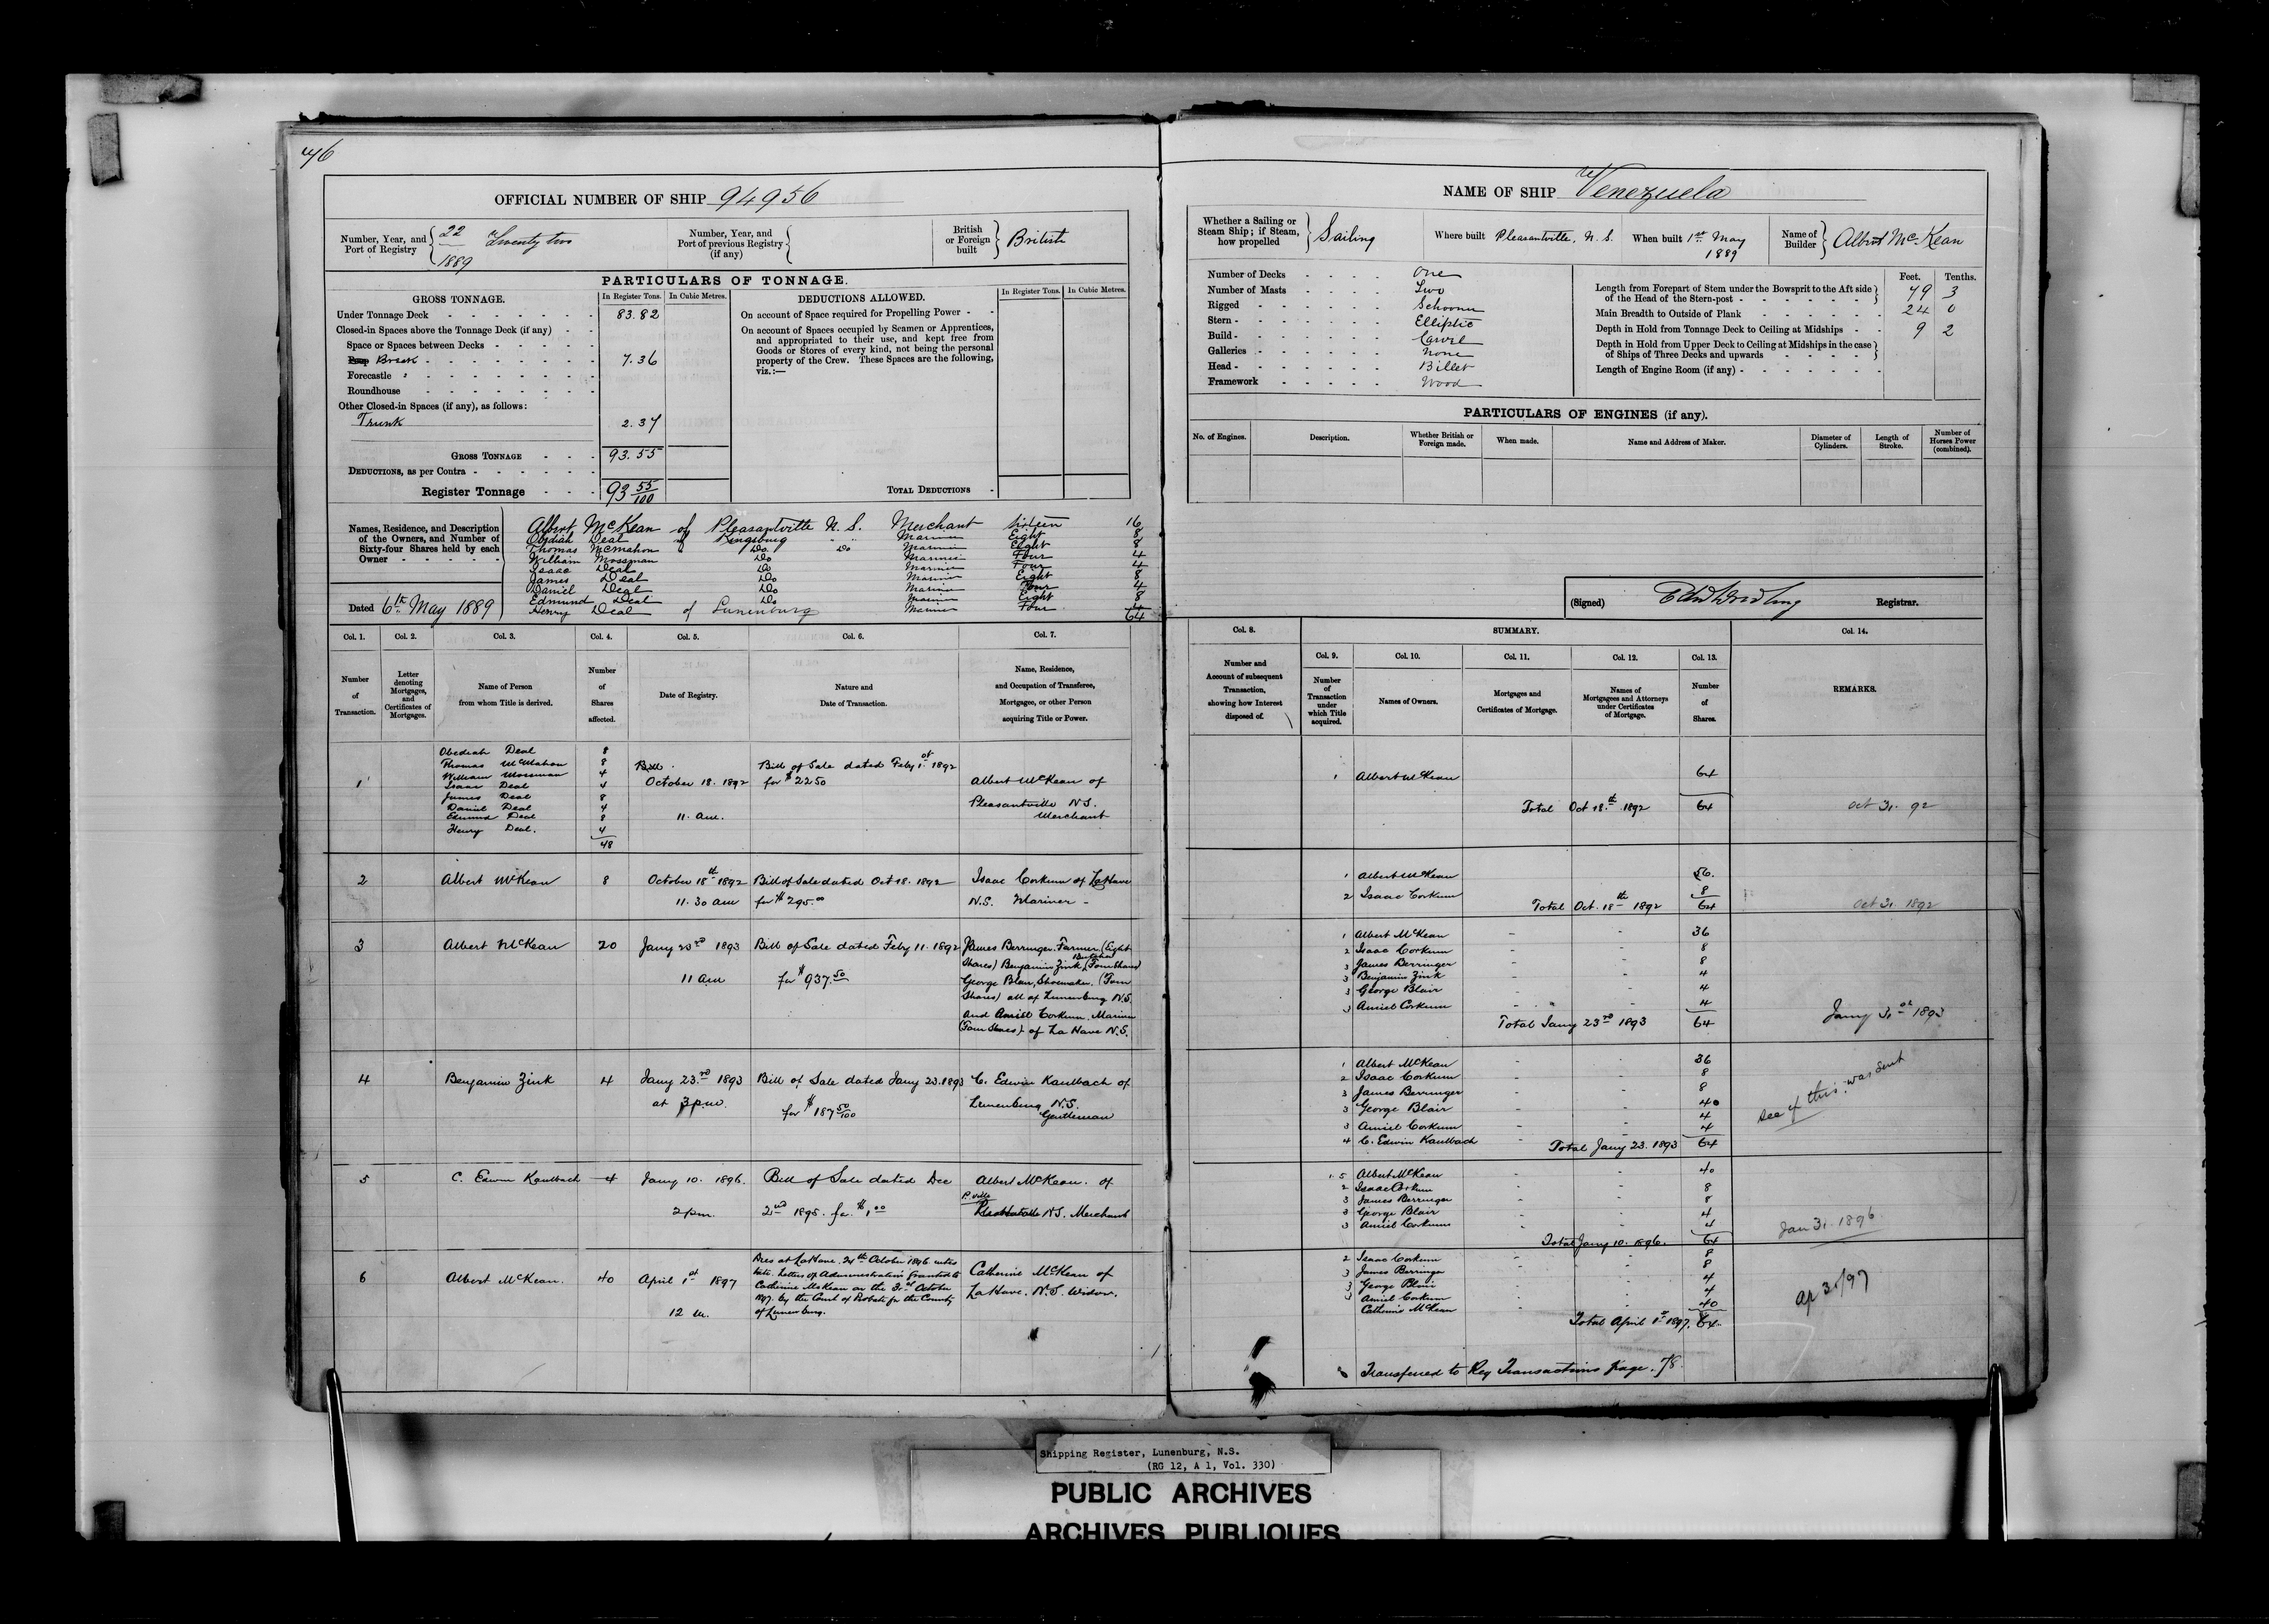 46
OFFICIAL NUMBER OF SHIP 94956
Number, Year, and Port of Registry 22 Twenty two 1889
Number, Year, and Port of previous Registry (if any)
British or Foreign built British
PARTICULARS OF TONNAGE.
GROSS TONNAGE. In Register Tons. In Cubic Metres.
Under Tonnage Deck 83.82
Closed-in Spaces above the Tonnage Deck (if any)
Space or Spaces between Decks
Break 7.36
Forecastle
Roundhouse
Other Closed-in Spaces (if any), as follows:
Trunk 2.37
GROSS TONNAGE 93.55
DEDUCTIONS, as per Contra
Register Tonnage 93 55/100
DEDUCTIONS ALLOWED. In Register Tons. In Cubic Metres.
On account of Space required for Propelling Power
On account of Spaces occupied by Seamen or Apprentices,
and appropriated to their use, and kept free from
Goods or Stores of every kind, not being the personal
property of the Crew. These Spaces are the following,
viz.:—
TOTAL DEDUCTIONS
Names, Residence, and Description
of the Owners, and Number of
Sixty-four Shares held by each
Owner
Albert McKean of Pleasantville N.S. Merchant Sixteen 16
Obediah Deal of Kingsburg Mariner Eight 8
Thomas McMahon Do Do Mariner Eight 8
William Mossman Do Mariner Four 4
Isaac Deal Do Mariner Four 4
James Deal Do Mariner Eight 8
Daniel Deal Do Mariner Four 4
Edmund Deal Do Mariner Eight 8
Henry Deal of Lunenburg Mariner Four 4
64
Dated 6th May 1889
Col. 1. Col. 2. Col. 3. Col. 4. Col. 5. Col. 6. Col. 7.
Number of Transaction.
Letter denoting Mortgages, and Certificates of Mortgages.
Name of Person from whom Title is derived.
Number of Shares affected.
Date of Registry.
Nature and Date of Transaction.
Name, Residence, and Occupation of Transferee, Mortgagee, or other Person acquiring Title or Power.
1
Obediah Deal 8
Thomas McMahon 8
William Mossman 4
Isaac Deal 4
James Deal 8
Daniel Deal 4
Edmund Deal 8
Henry Deal. 4
48
Bill
October 18. 1892
11. am.
Bill of Sale dated Feby 1st 1892
for $2250
Albert McKean of
Pleasantville N.S.
Merchant
2 Albert McKean 8 October 18th 1892 Bill of Sale dated Oct 18. 1892 Isaac Corkum of LaHave
11.30 am for $295.00 N.S. Mariner -
3 Albert McKean 20 Jany 23rd 1893 Bill of Sale dated Feby 11. 1892
11 am for $937.50
James Berringer. Farmer (Eight
Shares) Benjamin Zink, (Four Shares)
George Blair, Shoemaker. (Four
Shares) all of Lunenburg N.S.
and Amiel Corkum, Mariner
(Four Shares) of La Have N.S.
4 Benjamin Zink 4 Jany 23rd 1893 Bill of Sale dated Jany 23. 1893 C. Edwin Kaulbach of
at 3 p.m. for $187 50/100 Lunenburg N.S.
Gentleman
5 C. Edwin Kaulbach 4 Jany 10. 1896. Bill of Sale dated Dec Albert McKean. of
2 pm. 2nd 1895. for $1.00 P.ville N.S. Merchant
6 Albert McKean. 40 April 1st 1897
12 m.
Dies at LaHave. 24th October 1896 intes
tate. Letters of Administration granted to
Catherine McKean on the 31st October
by the Court of Probate for the County
of Lunenburg.
Catherine McKean of
LaHave. N.S. Widow.
NAME OF SHIP Venezuela
Whether a Sailing or Steam Ship; if Steam, how propelled Sailing
Where built Pleasantville, N.S.
When built 1st May 1889
Name of Builder Albert McKean
Number of Decks One
Number of Masts Two
Rigged Schooner
Stern Elliptic
Build Carvel
Galleries None
Head Billet
Framework Wood
Feet. Tenths.
Length from Forepart of Stem under the Bowsprit to the Aft side of the Head of the Stern-post 79 3
Main Breadth to Outside of Plank 24 0
Depth in Hold from Tonnage Deck to Ceiling at Midships 9 2
Depth in Hold from Upper Deck to Ceiling at Midships in the case of Ships of Three Decks and upwards
Length of Engine Room (if any)
PARTICULARS OF ENGINES (if any).
No. of Engines. Description. Whether British or Foreign made. When made. Name and Address of Maker. Diameter of Cylinders. Length of Stroke. Number of Horses Power (combined).
(Signed) Registrar.
Col. 8. SUMMARY. Col. 14.
Col. 9. Col. 10. Col. 11. Col. 12. Col. 13.
Number and Account of subsequent Transaction, showing how Interest disposed of.
Number of Transaction under which Title acquired.
Names of Owners.
Mortgages and Certificates of Mortgage.
Names of Mortgagees and Attorneys under Certificates of Mortgage.
Number of Shares.
REMARKS.
1 Albert McKean 64
Total Oct 18th 1892 64 Oct 31. 92
1 Albert McKean 56.
2 Isaac Corkum 8
Total Oct. 18th 1892 64 Oct 31 1892
1 Albert McKean 36
2 Isaac Corkum 8
3 James Berringer 8
3 Benjamin Zink 4
3 George Blair 4
3 Amiel Corkum 4
Total Jany 23rd 1893 64 Jany 31st 1893
1 Albert McKean 36
2 Isaac Corkum 8
3 James Berringer 8
3 George Blair 4
3 Amiel Corkum 4
4 C. Edwin Kaulbach 4
Total Jany 23. 1893 64
see if this was sent
1.5 Albert McKean 40
2 Isaac Corkum 8
3 James Berringer 8
3 George Blair 4
3 Amiel Corkum 4
Total Jany 10. 1896. 64 Jan 31. 1896
2 Isaac Corkum 8
3 James Berringer 8
3 George Blair 4
3 Amiel Corkum 4
Catherine McKean 40
Total April 1st 1897. 64 ap 31/97
Transferred to Reg Transactions page. 78.
Shipping Register, Lunenburg, N.S.
(RG 12, A 1, Vol. 330)
PUBLIC ARCHIVES
ARCHIVES PUBLIQUES